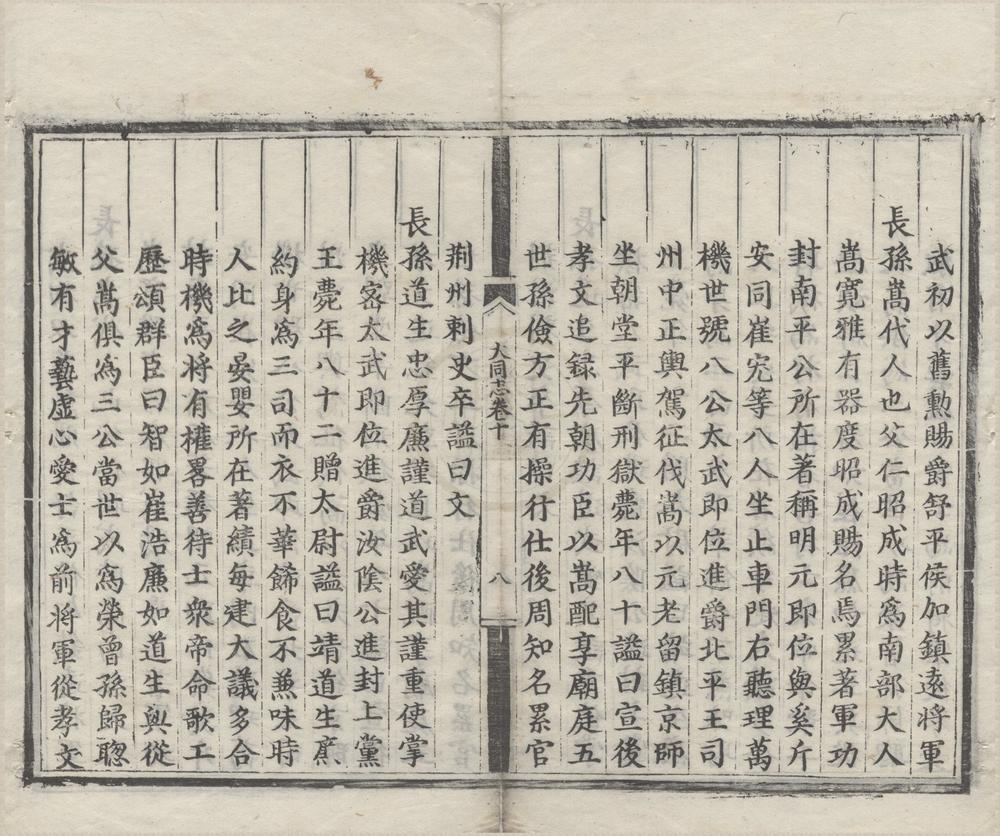 武初以舊勲賜爵舒平侯加鎮遠将軍
長孫嵩代人也父仁昭成時爲南部大人
嵩寛雅有器度昭成賜名焉累著軍功
封南平公所在著稱明元即位與奚斤
安同崔宏等八人坐止車門右聽理萬
機世號八公太武即位進爵北平王司
州中正輿駕征伐嵩以元老留鎮京師
坐朝堂平斷刑獄薨年八十謚曰宣後
孝文追録先朝功臣以嵩配享廟庭五
世孫儉方正有操行仕後周知名累官
大同志卷十
八
荆州刺史卒謚曰文
長孫道生忠厚廉謹道武愛其謹重使掌
機宻太武即位進爵汝隂公進封上黨
王薨年八十二贈太尉謚曰靖道生廉
約身爲三司而衣不華餙食不兼味時
人比之晏嬰所在著績每建大議多合
時機爲将有權畧善待士衆帝命歌工
歷頌群臣曰智如崔浩廉如道生與從
父嵩俱爲三公當世以爲榮曾孫歸聦
敏有才藝虚心愛士爲前将軍從孝文